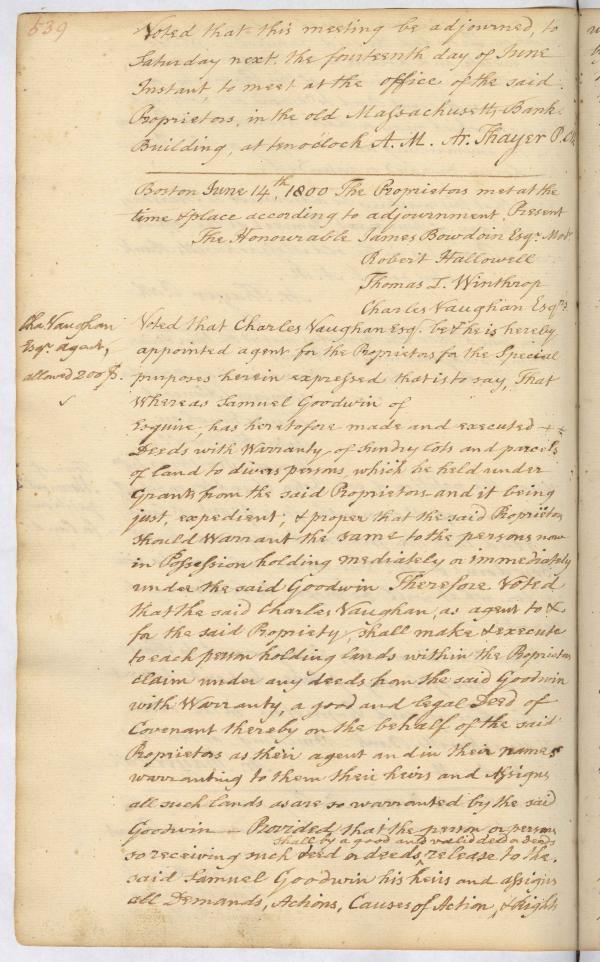 539
Voted that this meeting be adjourned, to
Saturday next, the fourteenth day of June
Instant, to meet at the office of the said
Proprietors, in the old Massachusetts Bank
Building, at ten o'clock A. M. Ar. Thayer P. Ck
Boston June 14th, 1800 The Proprietors met at the
time & place according to adjournment. Present
The Honourable James Bowdoin Esqr. Modr.
Robert Hallowell
Thomas L. Winthrop
Charles Vaughan Esqrs
Cha. Vaughan
Esqr. agent,
allowed 200 $.
Voted that Charles Vaughan Esq. be & he is hereby
appointed agent for the Proprietors for the Special
purposes herein expressed that is to say, That
Whereas Samuel Goodwin of
Esquire, has heretofore made and executed
Deeds with Warranty of Sundry Lots and parcels
of land to divers persons, which be held under
Grants from the said Proprietors and it being
just, expedient, & proper that the said Proprietors
should Warrant the same to the persons now
in Possession holding mediately or immediately
under the said Goodwin Therefore Voted
that the said Charles Vaughan, as agent to &
for the said Propriety, shall make & execute
to each person holding lands within the Proprietors
claim under any deeds from the said Goodwin
with Warranty, a good and legal Deed of
Covenant thereby on the behalf of the said
Proprietors as their agent and in their names
warranting to them their heirs and Assigns
all such lands as are so warranted by the said
Goodwin — Provided, that the person or persons
shall by a good and valid deed or deeds
so receiving such deed or deeds, release to the
said Samuel Goodwin his heirs and assigns
all Demands, Actions, Causes of Action, & Rights